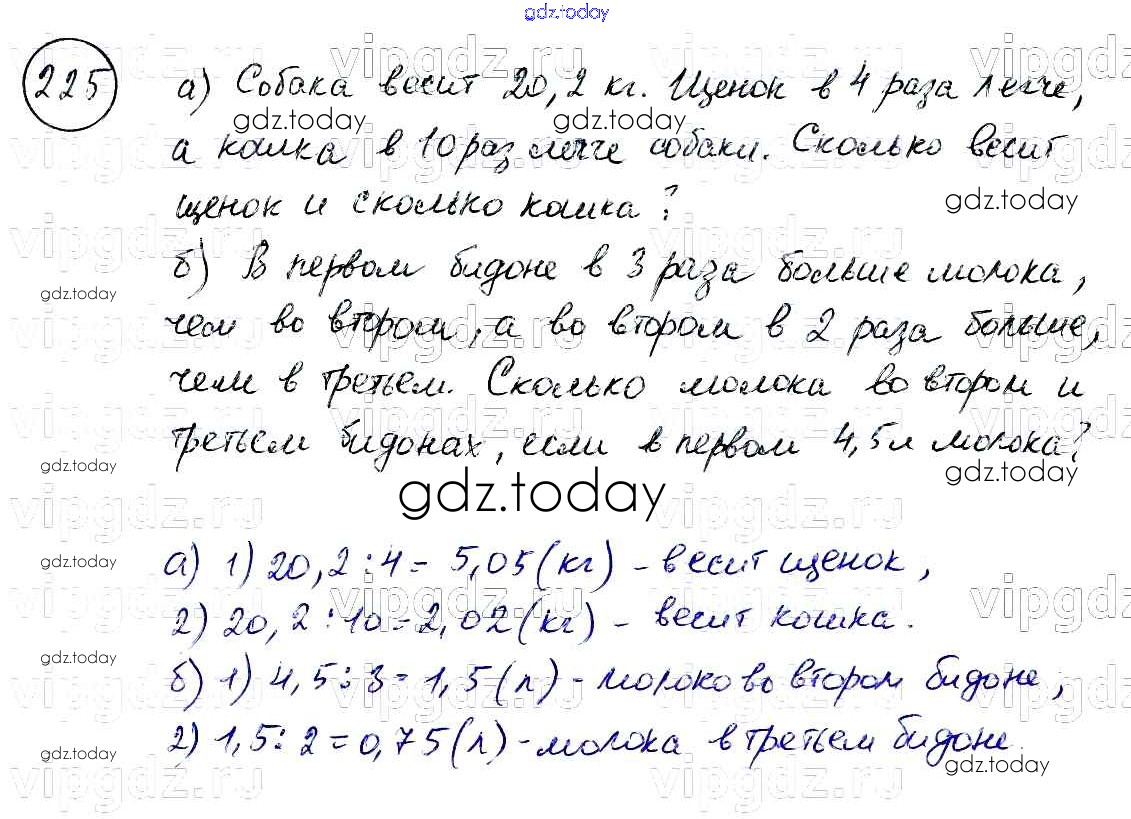 gdz.today
225
а) Собака весит 20,2 кг. Щенок в 4 раза легче,
а кошка в 10 раз легче собаки. Сколько весит
щенок и сколько кошка?
б) В первом бидоне в 3 раза больше молока,
чем во втором, а во втором в 2 раза больше,
чем в третьем. Сколько молока во втором и
третьем бидонах, если в первом 4,5 л молока?
gdz.today
а) 1) 20,2 : 4 = 5,05 (кг) - весит щенок,
2) 20,2 : 10 = 2,02 (кг) - весит кошка.
б) 1) 4,5 : 3 = 1,5 (л) - молоко во втором бидоне,
2) 1,5 : 2 = 0,75 (л) - молока в третьем бидоне.
gdz.today
vipgdz.ru